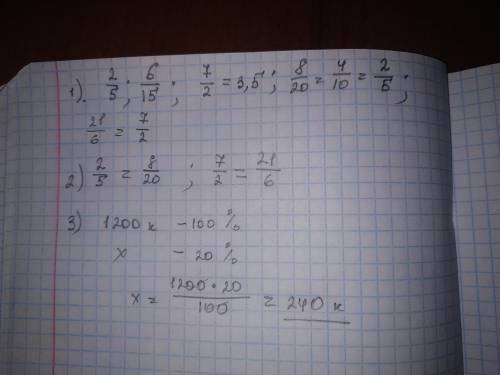 1). 2/5; 6/15; 7/2 = 3,5; 8/20 = 4/10 = 2/5;
21/6 = 7/2
2) 2/5 = 8/20 ; 7/2 = 21/6
3) 1200 к - 100 %
x - 20 %
x = 1200 · 20 / 100 = 240 к